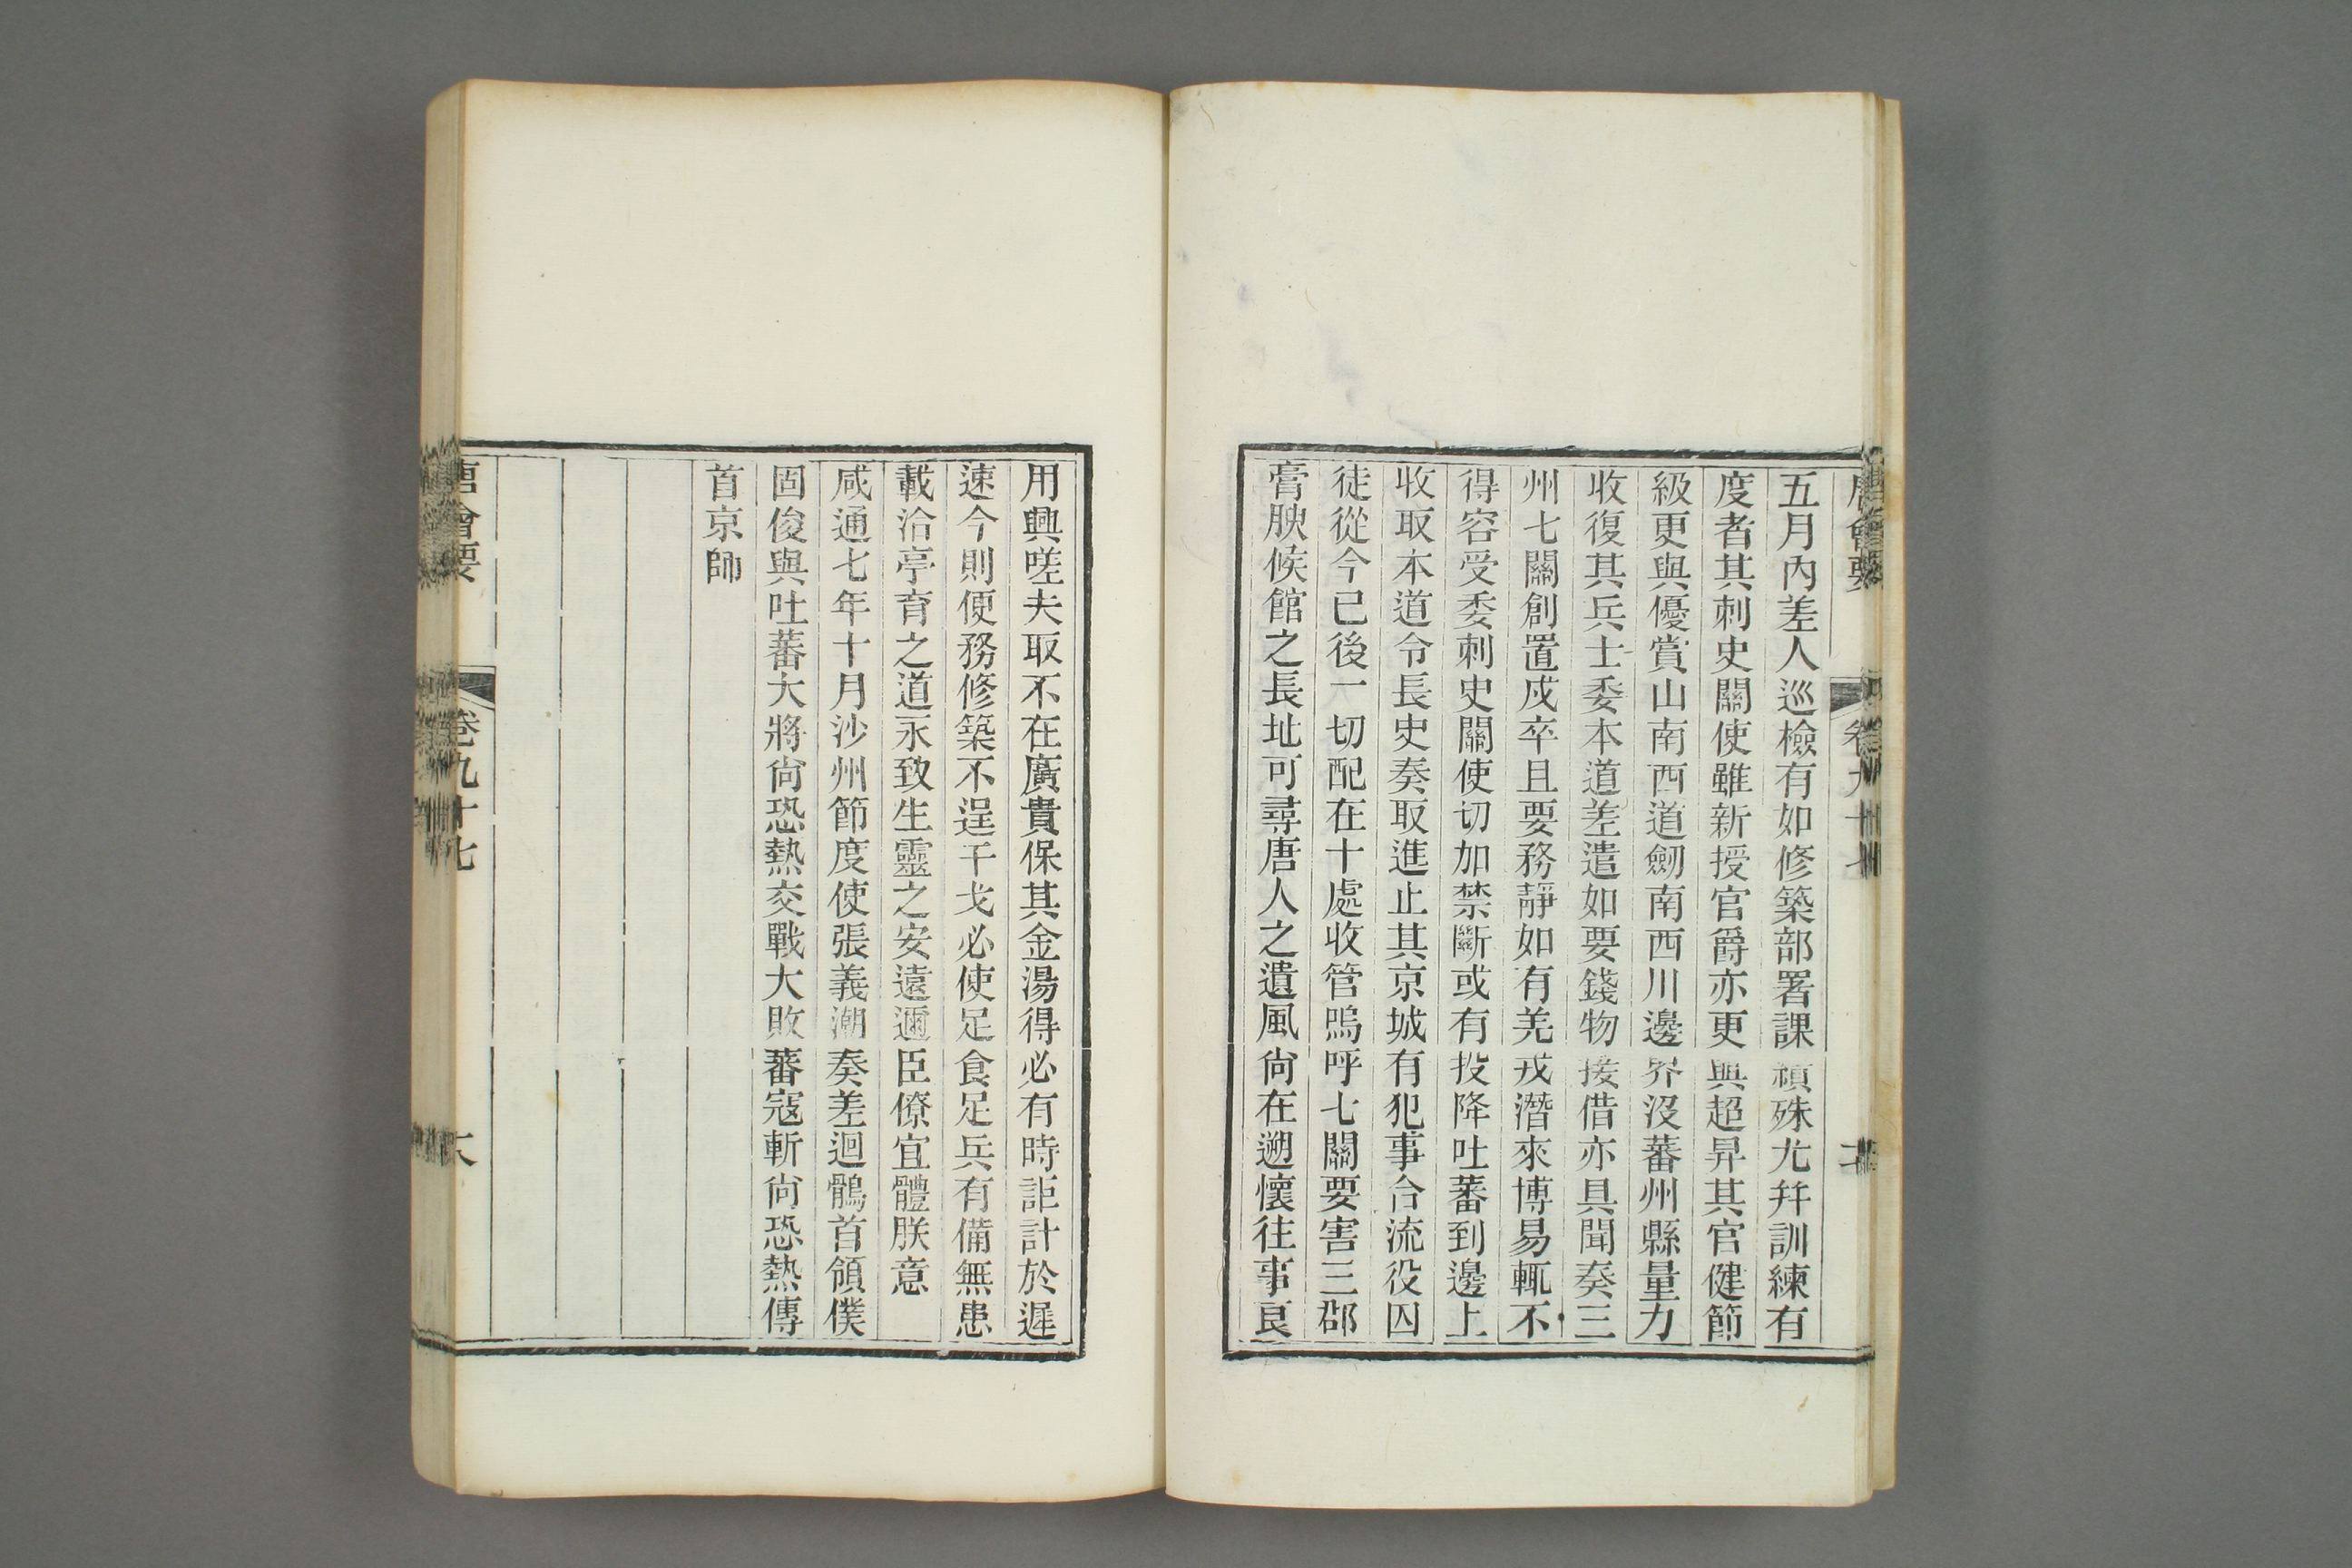 唐會要 卷九十七
五月內差人巡檢有如修築部署課績殊尤幷訓練有
度者其刺史關使雖新授官爵亦更與超昇其官健節
級更與優賞山南西道劒南西川邊界沒蕃州縣量力
收復其兵士委本道差遣如要錢物接借亦具聞奏三
州七關創置戍卒且要務靜如有羌戎潛來博易輒不
得容受委刺史關使切加禁斷或有投降吐蕃到邊上
收取本道令長史奏取進止其京城有犯事合流役囚
徒從今已後一切配在十處收管嗚呼七關要害三郡
膏腴候館之長址可尋唐人之遺風尙在遡懷往事良
用興嗟夫取不在廣貴保其金湯得必有時詎計於遲
速今則便務修築不逞干戈必使足食足兵有備無患
載洽亭育之道永致生靈之安遠邇臣僚宜體朕意
咸通七年十月沙州節度使張義潮奏差迴鶻首領僕
固俊與吐蕃大將尙恐熱交戰大敗蕃寇斬尙恐熱傳
首京師
唐會要 卷九十七